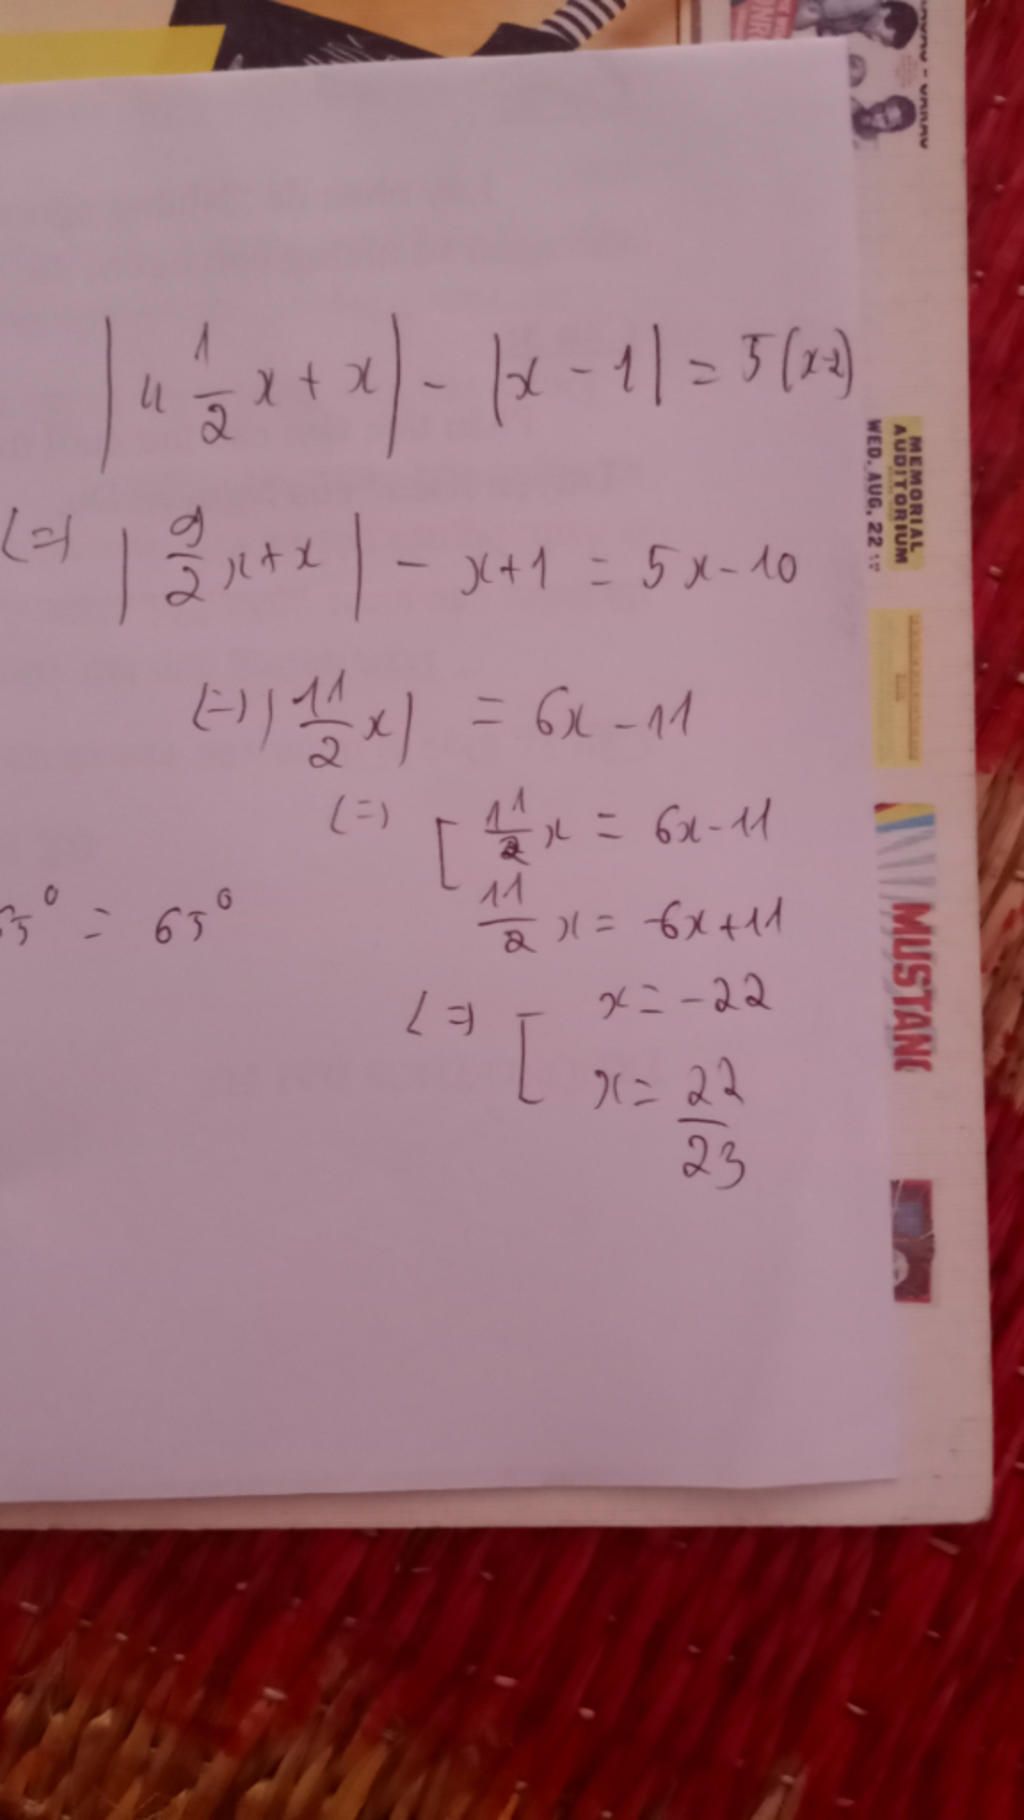 |4 1/2 x + x| - |x - 1| = 5(x-2)
<=> |9/2 x + x| - x + 1 = 5x - 10
<=> |11/2 x| = 6x - 11
<=> [ 11/2 x = 6x - 11
11/2 x = -6x + 11
65° = 65°
<=> [ x = -22
x = 22/23
MEMORIAL
AUDITORIUM
WED. AUG. 22
MUSTANG